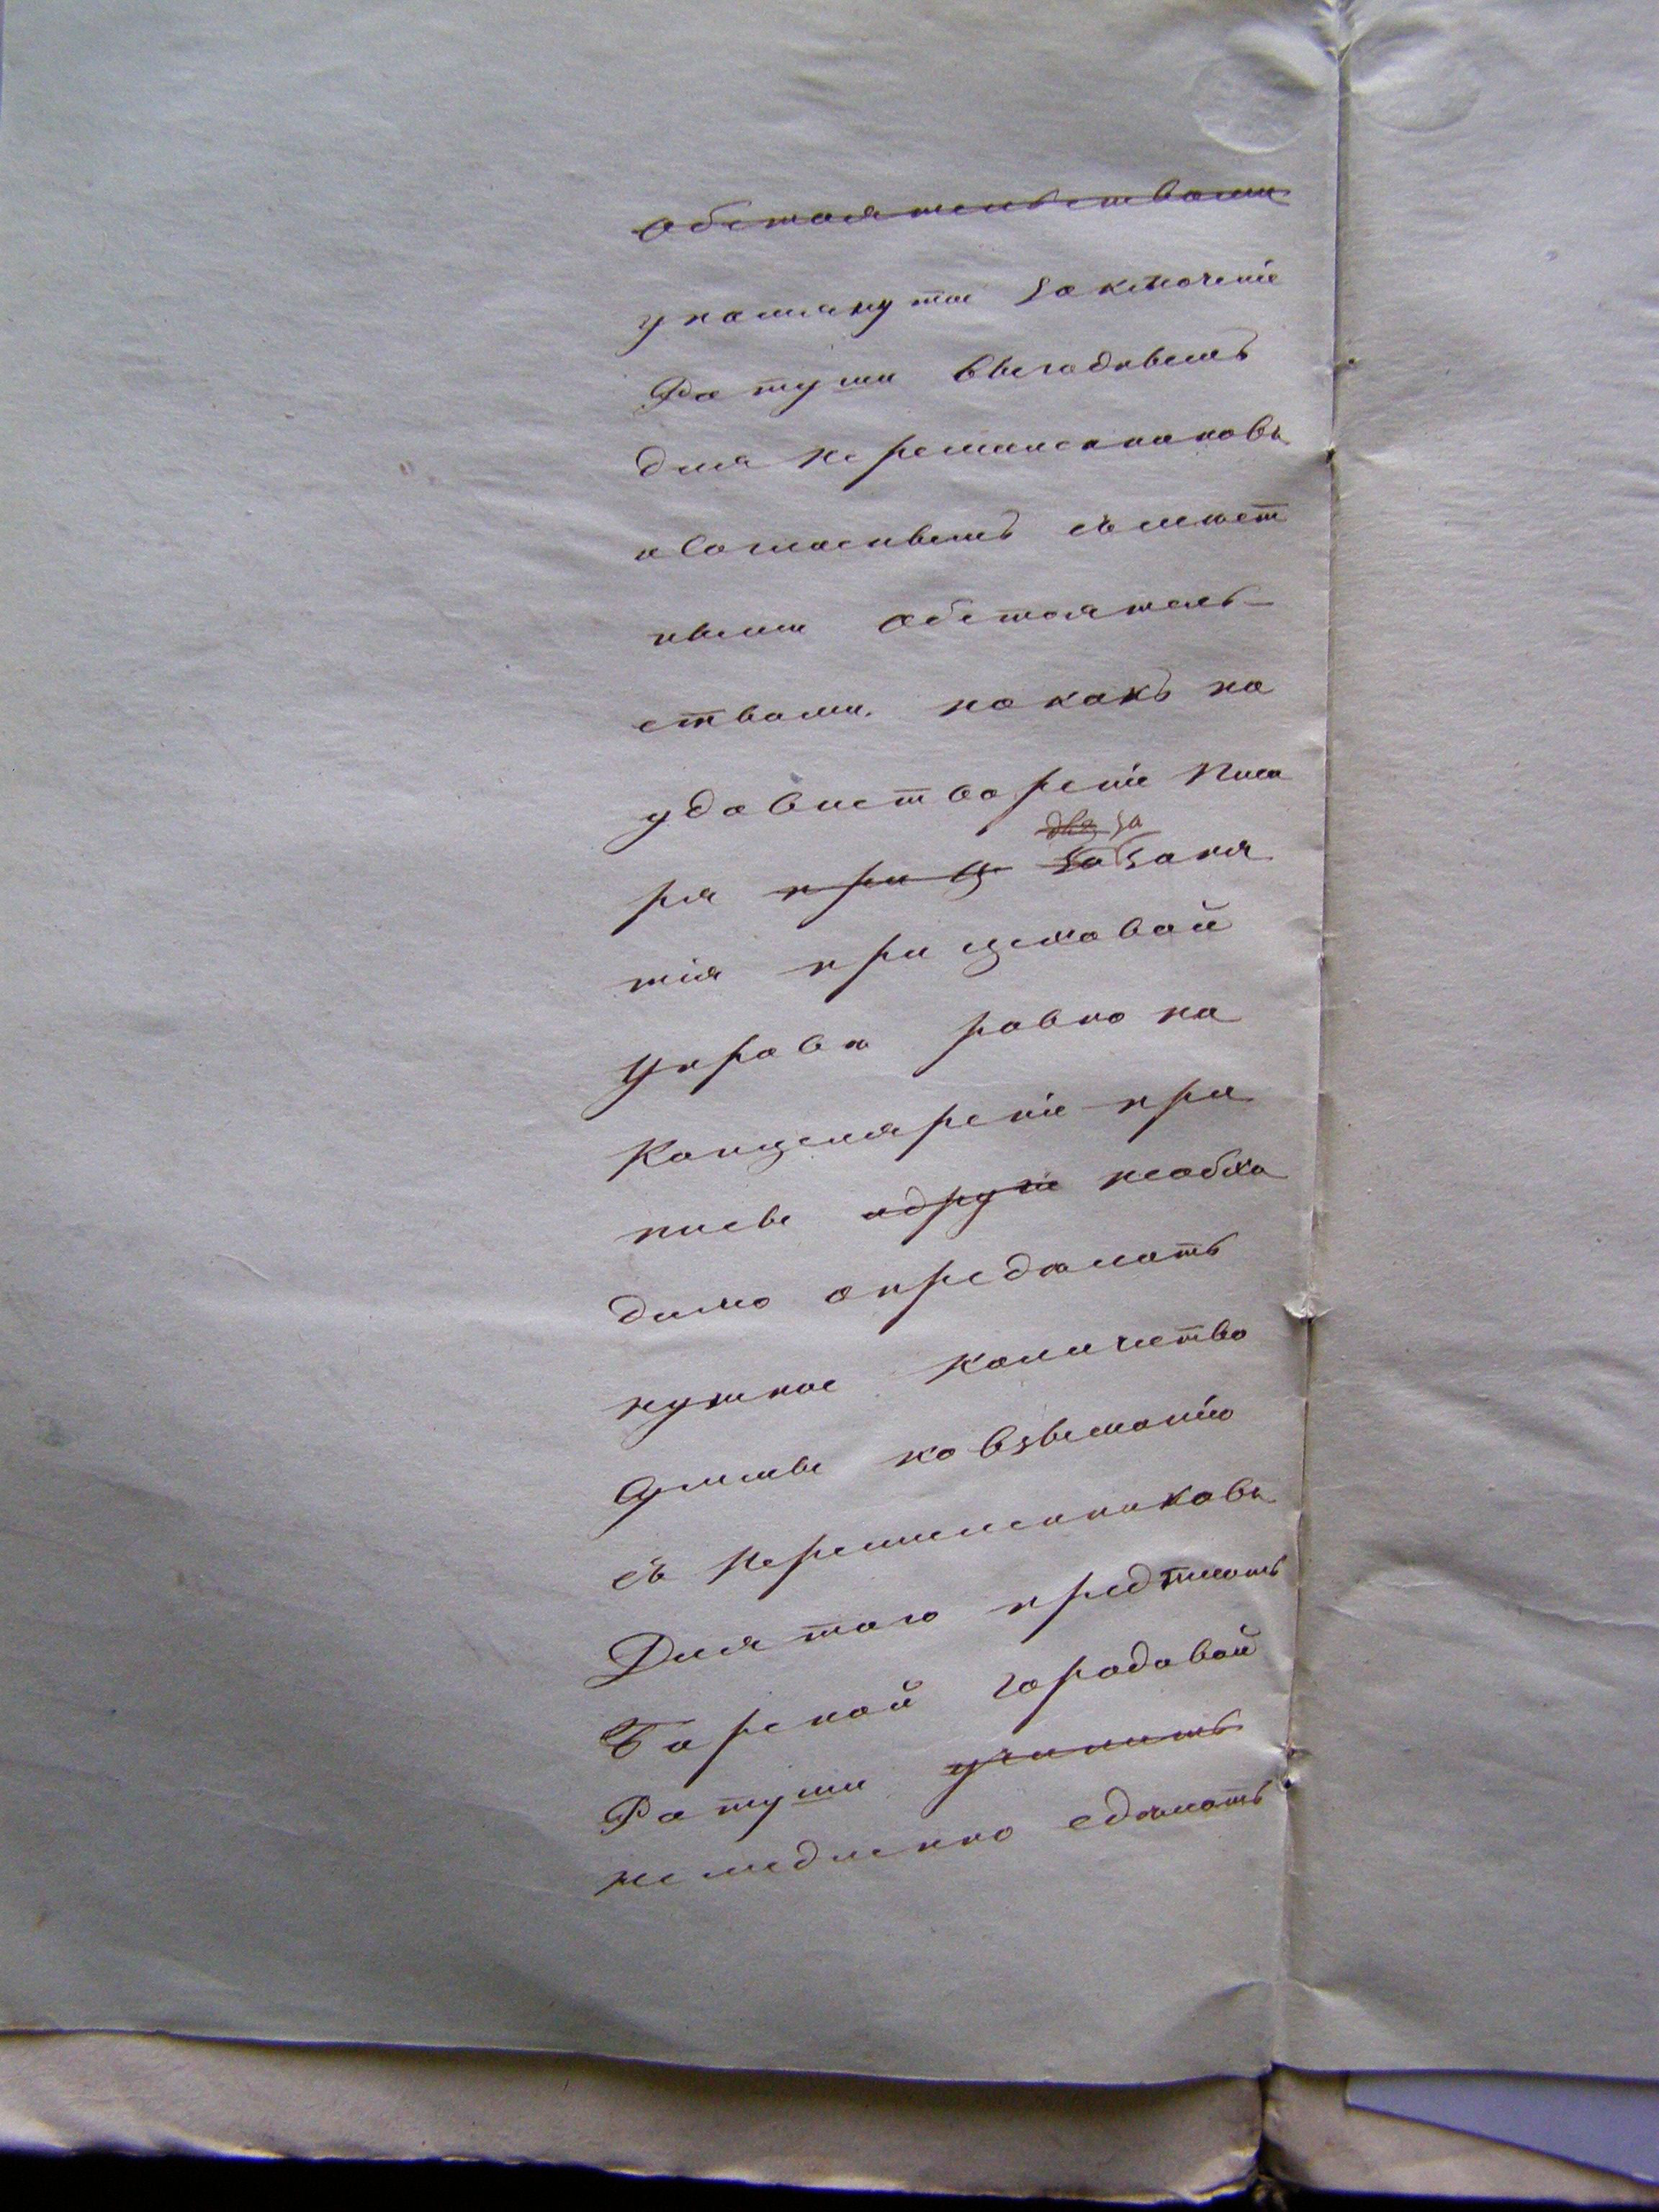 обстоятельствами
упомянутое заключенiе
Ратуши выгоднымъ
для ремесленниковъ
и согласнымъ съ мест
ными обстоятель-
ствами. но какъ на
удовлетворенiе писа
ря при ц за за заня
тiя при цеховой
Управе равно на
Канцелярскiе при
пасы и другiе необхо
димо определить
нужное количество
суммы ко взыманiю
съ Ремесленниковъ
Для того предписать
Барской городовой
Ратуши учинить
немедленно сделать